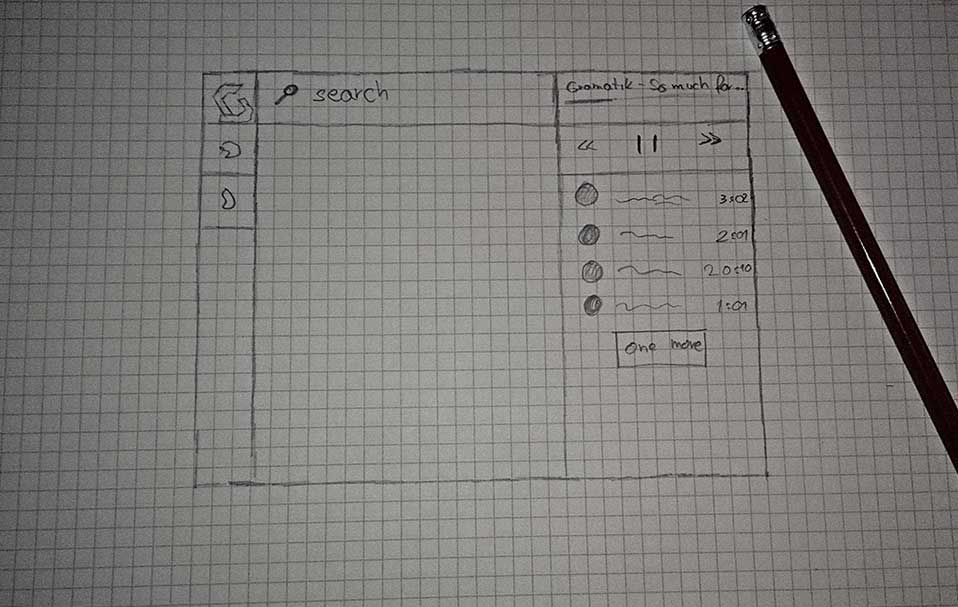 search
Gramatik - So much for..
<< || >>
3:02
2:01
20:10
1:01
One more